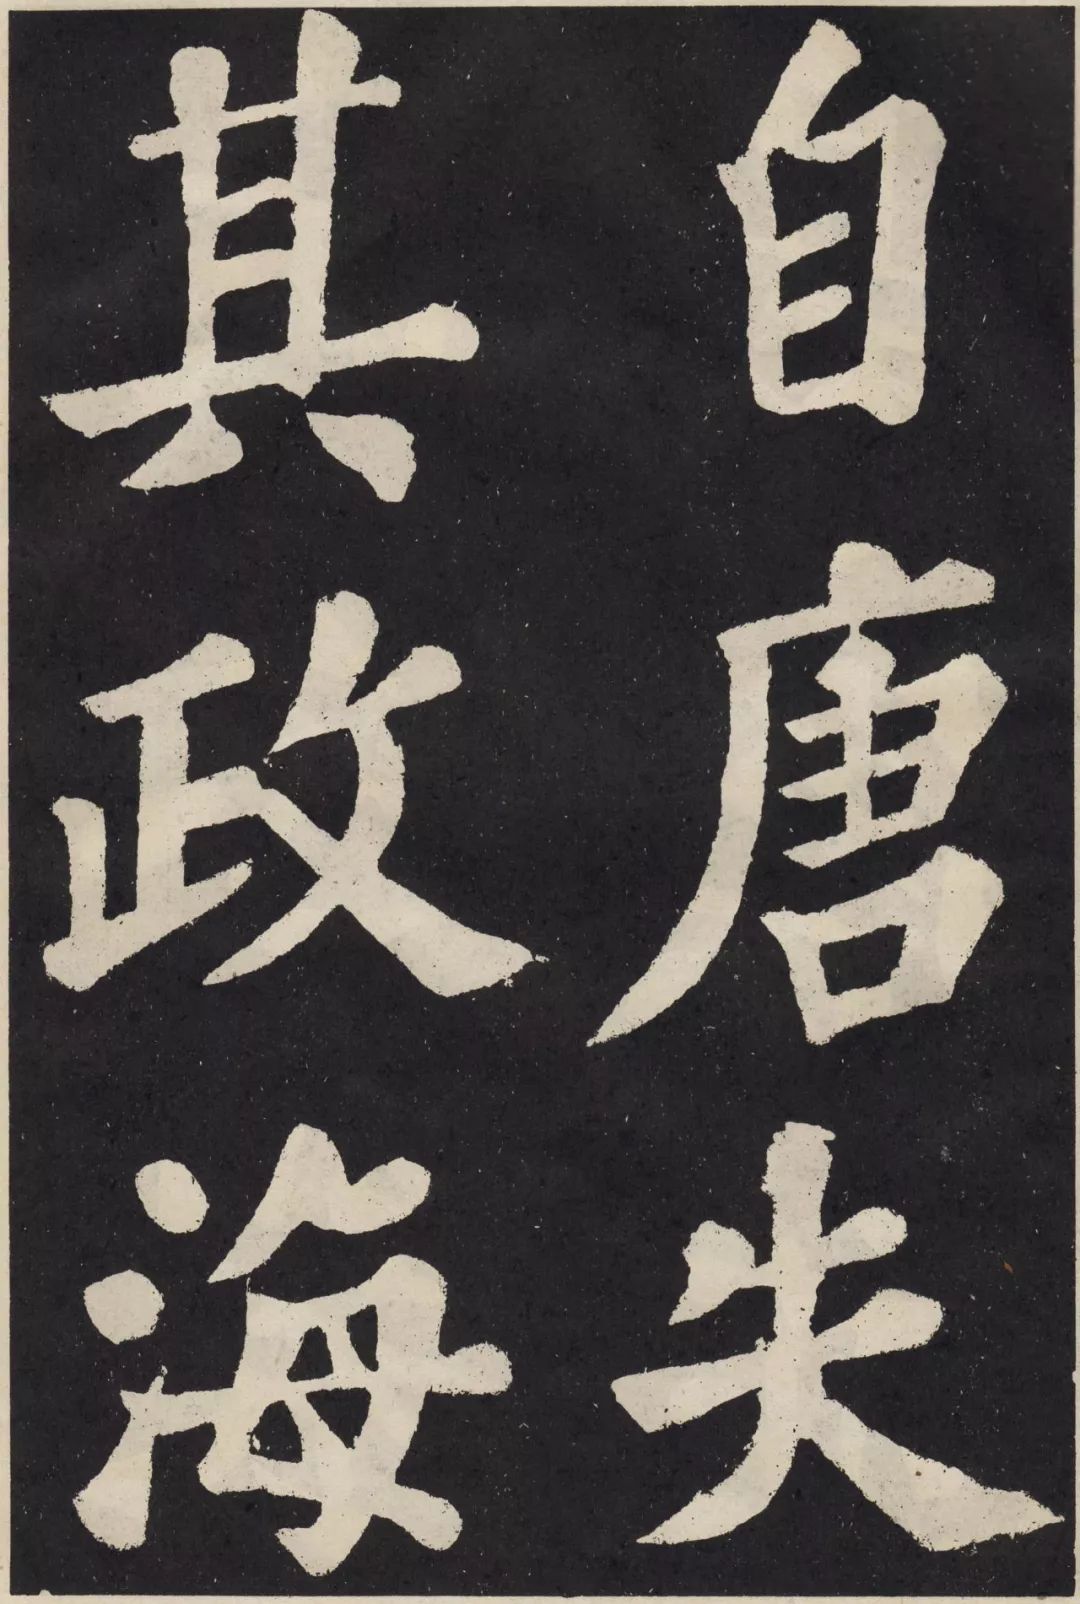 自唐失
其政海